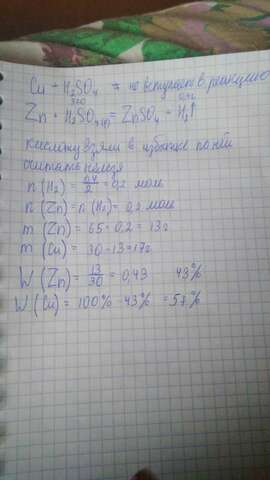 Cu + H₂SO₄ ≠ не вступает в реакцию
Zn + H₂SO₄ = ZnSO₄ + H₂↑
кислоту взяли в избытке по ней
считать нельзя
n (H₂) = 0,4/2 = 0,2 моль
n (Zn) = n (H₂) = 0,2 моль
m (Zn) = 65 · 0,2 = 13г
m (Cu) = 30 - 13 = 17г
W (Zn) = 13/30 = 0,43 43%
W (Cu) = 100% - 43% = 57%